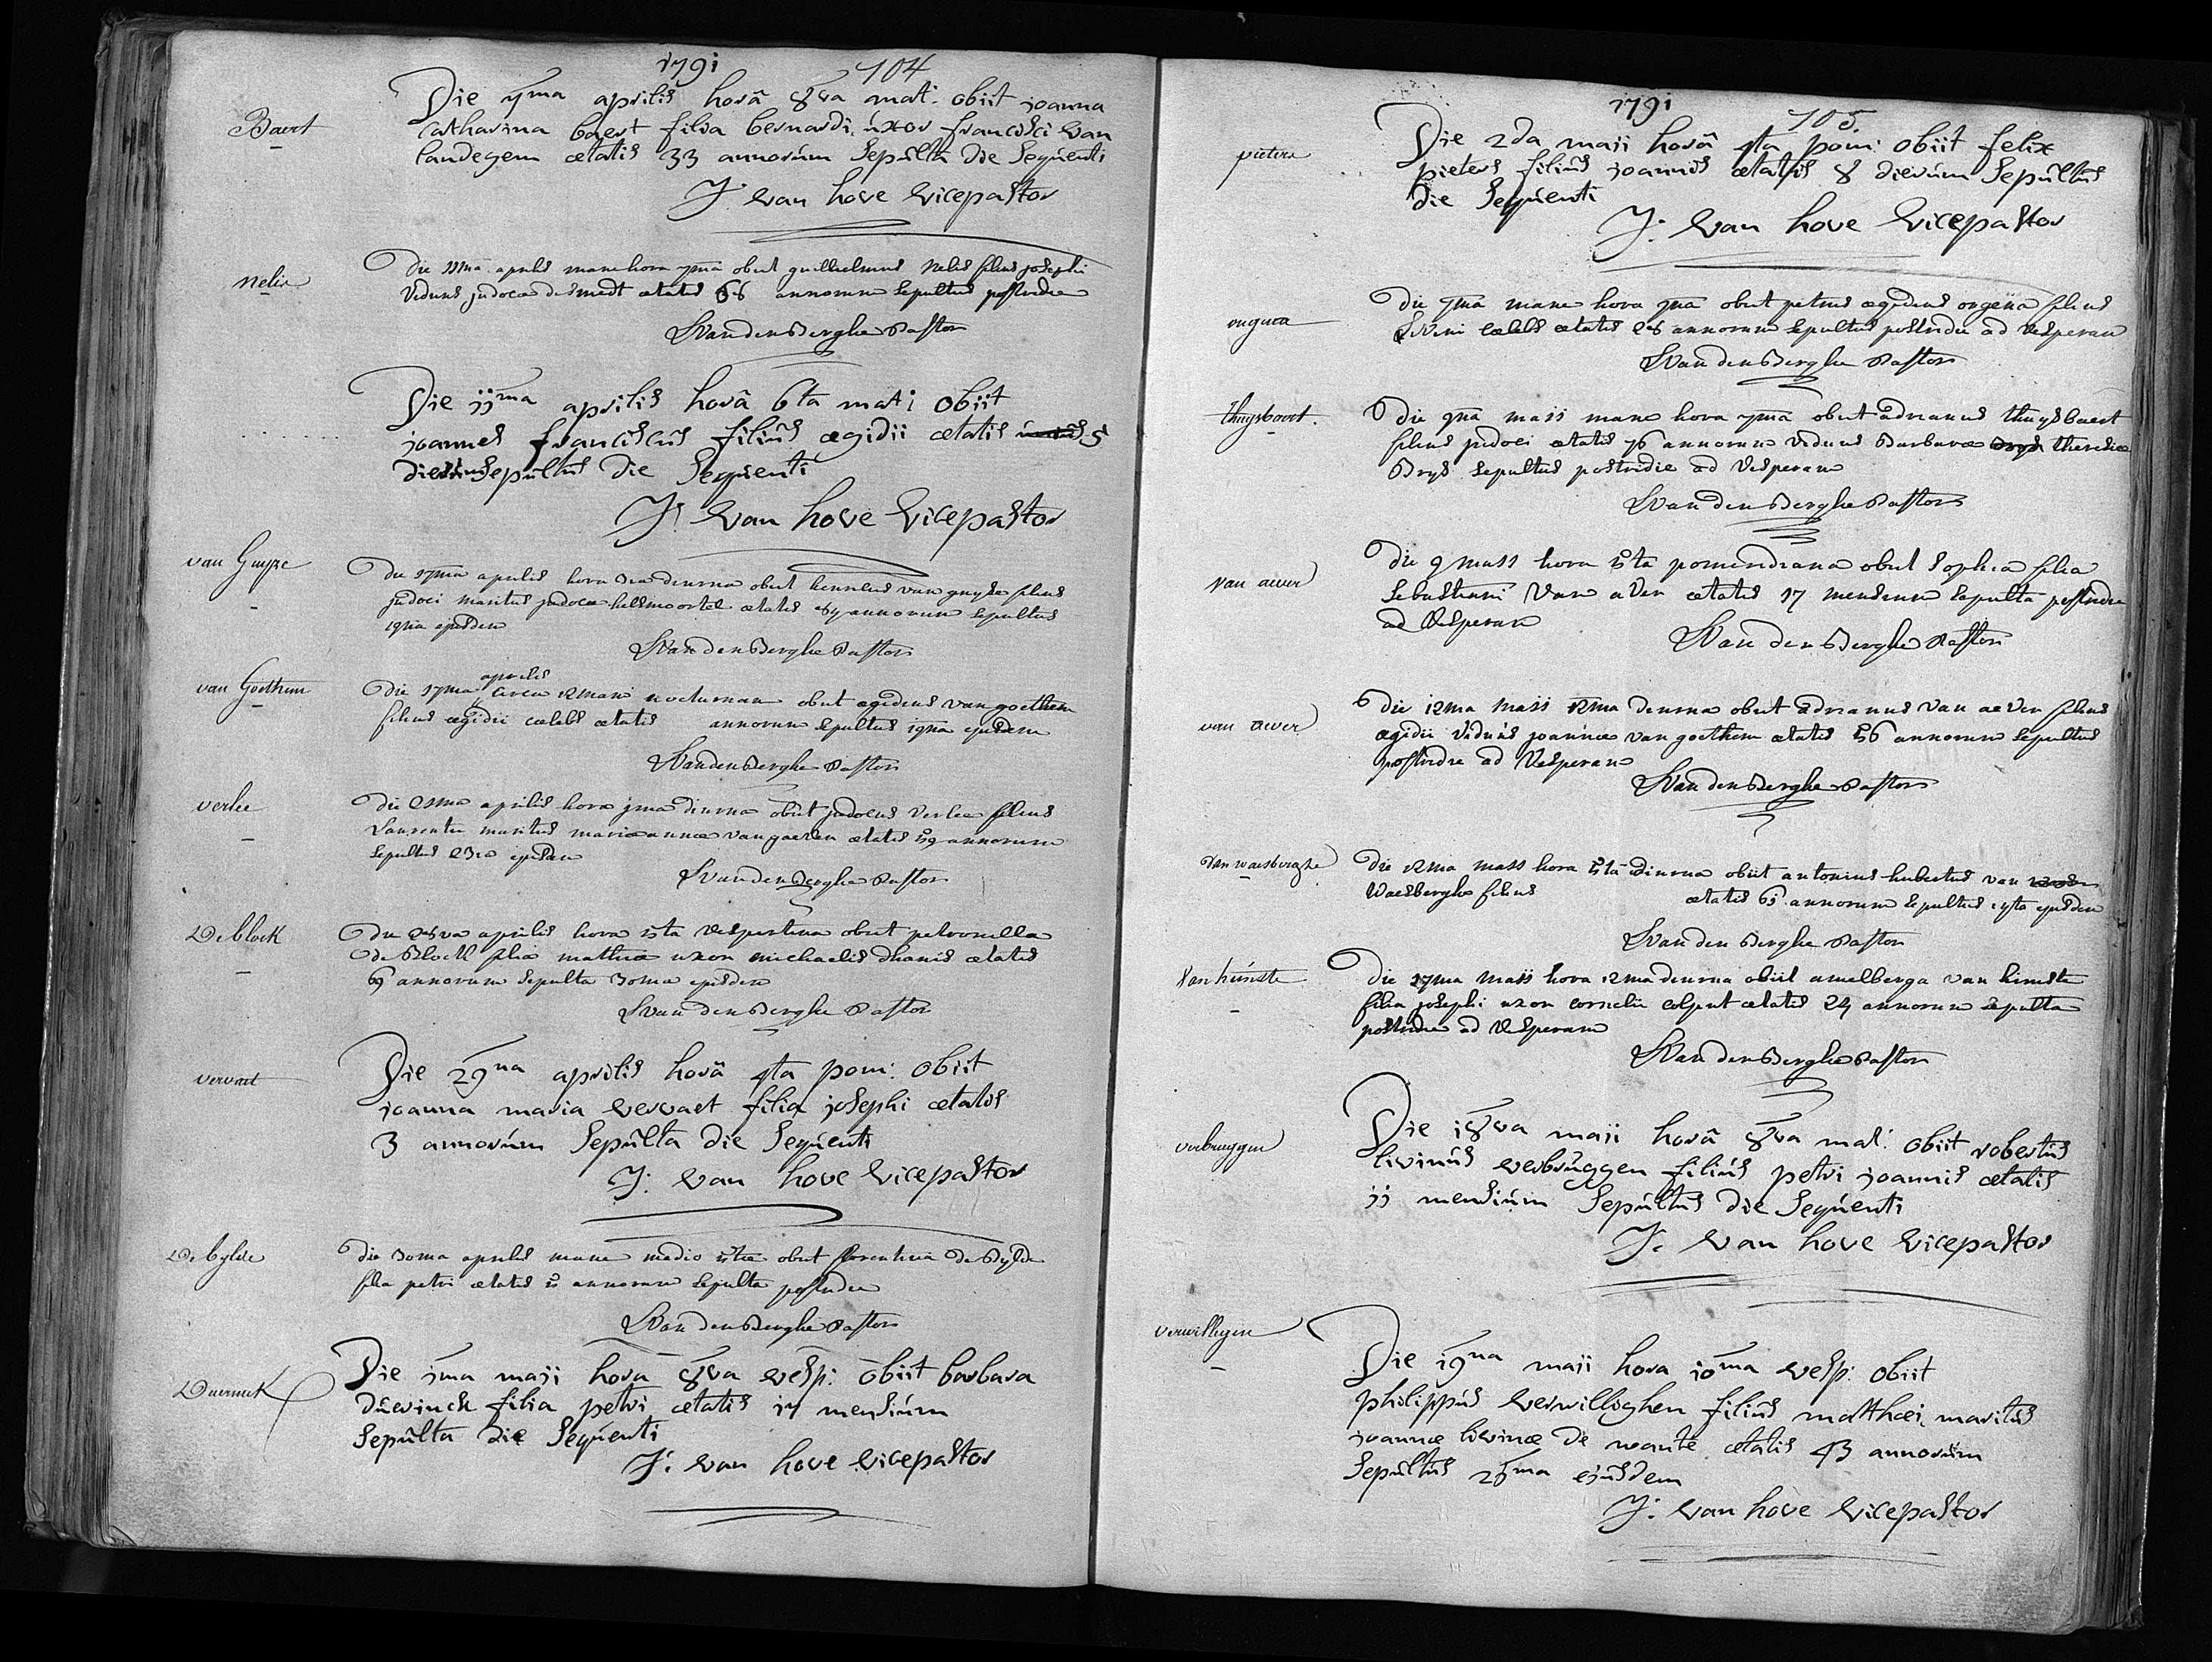 1791 104
Baert
Die 7ma aprilis horâ 8va mat: obiit joanna
Catharina baert filia bernardi uxor francisci van
landegem ætatis 33 annorum Sepulta die Sequenti
J: van hove vicepastor
nelis
die 11ma aprilis mane hora 7ma obiit guillielmus Nelis filius josephi
viduus judocæ desmedt ætatis 66 annorum sepultus postridie
S Van den Berghe Pastor
Die jjma aprilis horâ 6ta mat: obiit
joannes franciscus filius ægidii ætatis 5
dierum Sepultus die Sequenti
J: van hove vicepastor
van Guyze
die 17ma aprilis hora 3ia diurna obiit van guyse filius
judoci maritus judocæ helsmoortel ætatis annorum sepultus
19na ejusdem
S Van den Berghe Pastor
van Goethem
aprilis
die 17ma circa 12mam nocturnam obiit ægidius van goethem
filius ægidii cælebs ætatis annorum sepultus 19na ejusdem
S Van den Berghe Pastor
verlee
die 21ma aprilis hora 1ma diurna obiit judocus verlee filius
Laurentii maritus mariæ annæ van gaever ætatis 59 annorum
sepultus 23ia ejusdem
S Van den Berghe Pastor
De block
die 28va aprilis hora 5ta vespertina obiit petronilla
De Block filia mathiæ uxor michaelis dhanis ætatis
69 annorum sepulta 30ma ejusdem
S Van den Berghe Pastor
vervaet
Die 29na aprilis horâ 4ta pom: obiit
joanna maria vervaet filia josephi ætatis
3 annorum Sepulta die Sequenti
J: van hove vicepastor
De bylde
die 30ma aprilis mane medio 5tæ obiit florentina De Bylde
filia petri ætatis 5 annorum sepulta postridie
S Van den Berghe Pastor
Duerinck
Die jma maji hora 8va vesp: obiit barbara
duerinck filia petri ætatis 14 mensium
Sepulta die Sequenti
J: van hove vicepastor
1791 105
pieters
Die 2da maji horâ 4ta pom: obiit felix
pieters filius joannis ætatis 8 dierum Sepultus
die Sequenti
J: van hove vicepastor
ongena
die 7ma mane hora 9na obiit petrus ægidius ongena filius
Livini cælebs ætatis 26 annorum sepultus postridie ad vesperam
S Van den Berghe Pastor
thuysbaert
die 9na maii mane hora 7ma obiit adrianus thuysbaert
filius judoci ætatis 76 annorum viduus Barbaræ theresiæ
Brys sepultus postridie ad vesperam
S Van den Berghe Pastor
van aever
die 9 maii hora 5ta pomeridiana obiit sophia filia
sebastiani Van aver ætatis 17 mensium sepulta postridie
ad vesperam
S Van den Berghe Pastor
van aever
die 12ma maii 12ma diurna obiit adrianus van aever filius
ægidii viduus joannæ van goethem ætatis 56 annorum sepultus
postridie ad vesperam
S Van den Berghe Pastor
van waesberghe
die 12ma maii hora 5ta diurna obiit antonius hubertus van
Waesberghe filius ætatis 65 annorum sepultus 14ta ejusdem
S Van den Berghe Pastor
van himste
die 17ma maii hora 12ma diurna obiit amelberga van himste
filia josephi uxor cornelii colput ætatis 24 annorum sepulta
postridie ad vesperam
S Van den Berghe Pastor
verbruggen
Die 18va maji horâ 8va mat: obiit robertus
livinus verbruggen filius petri joannis ætatis
jj mensium Sepultus die Sequenti
J: van hove vicepastor
verwilligen
Die 19na maji hora 10ma vesp: obiit
philippus verwillighen filius matthæi maritus
joannæ livinæ de wante ætatis 43 annorum
Sepultus ejusdem
J: van hove vicepastor